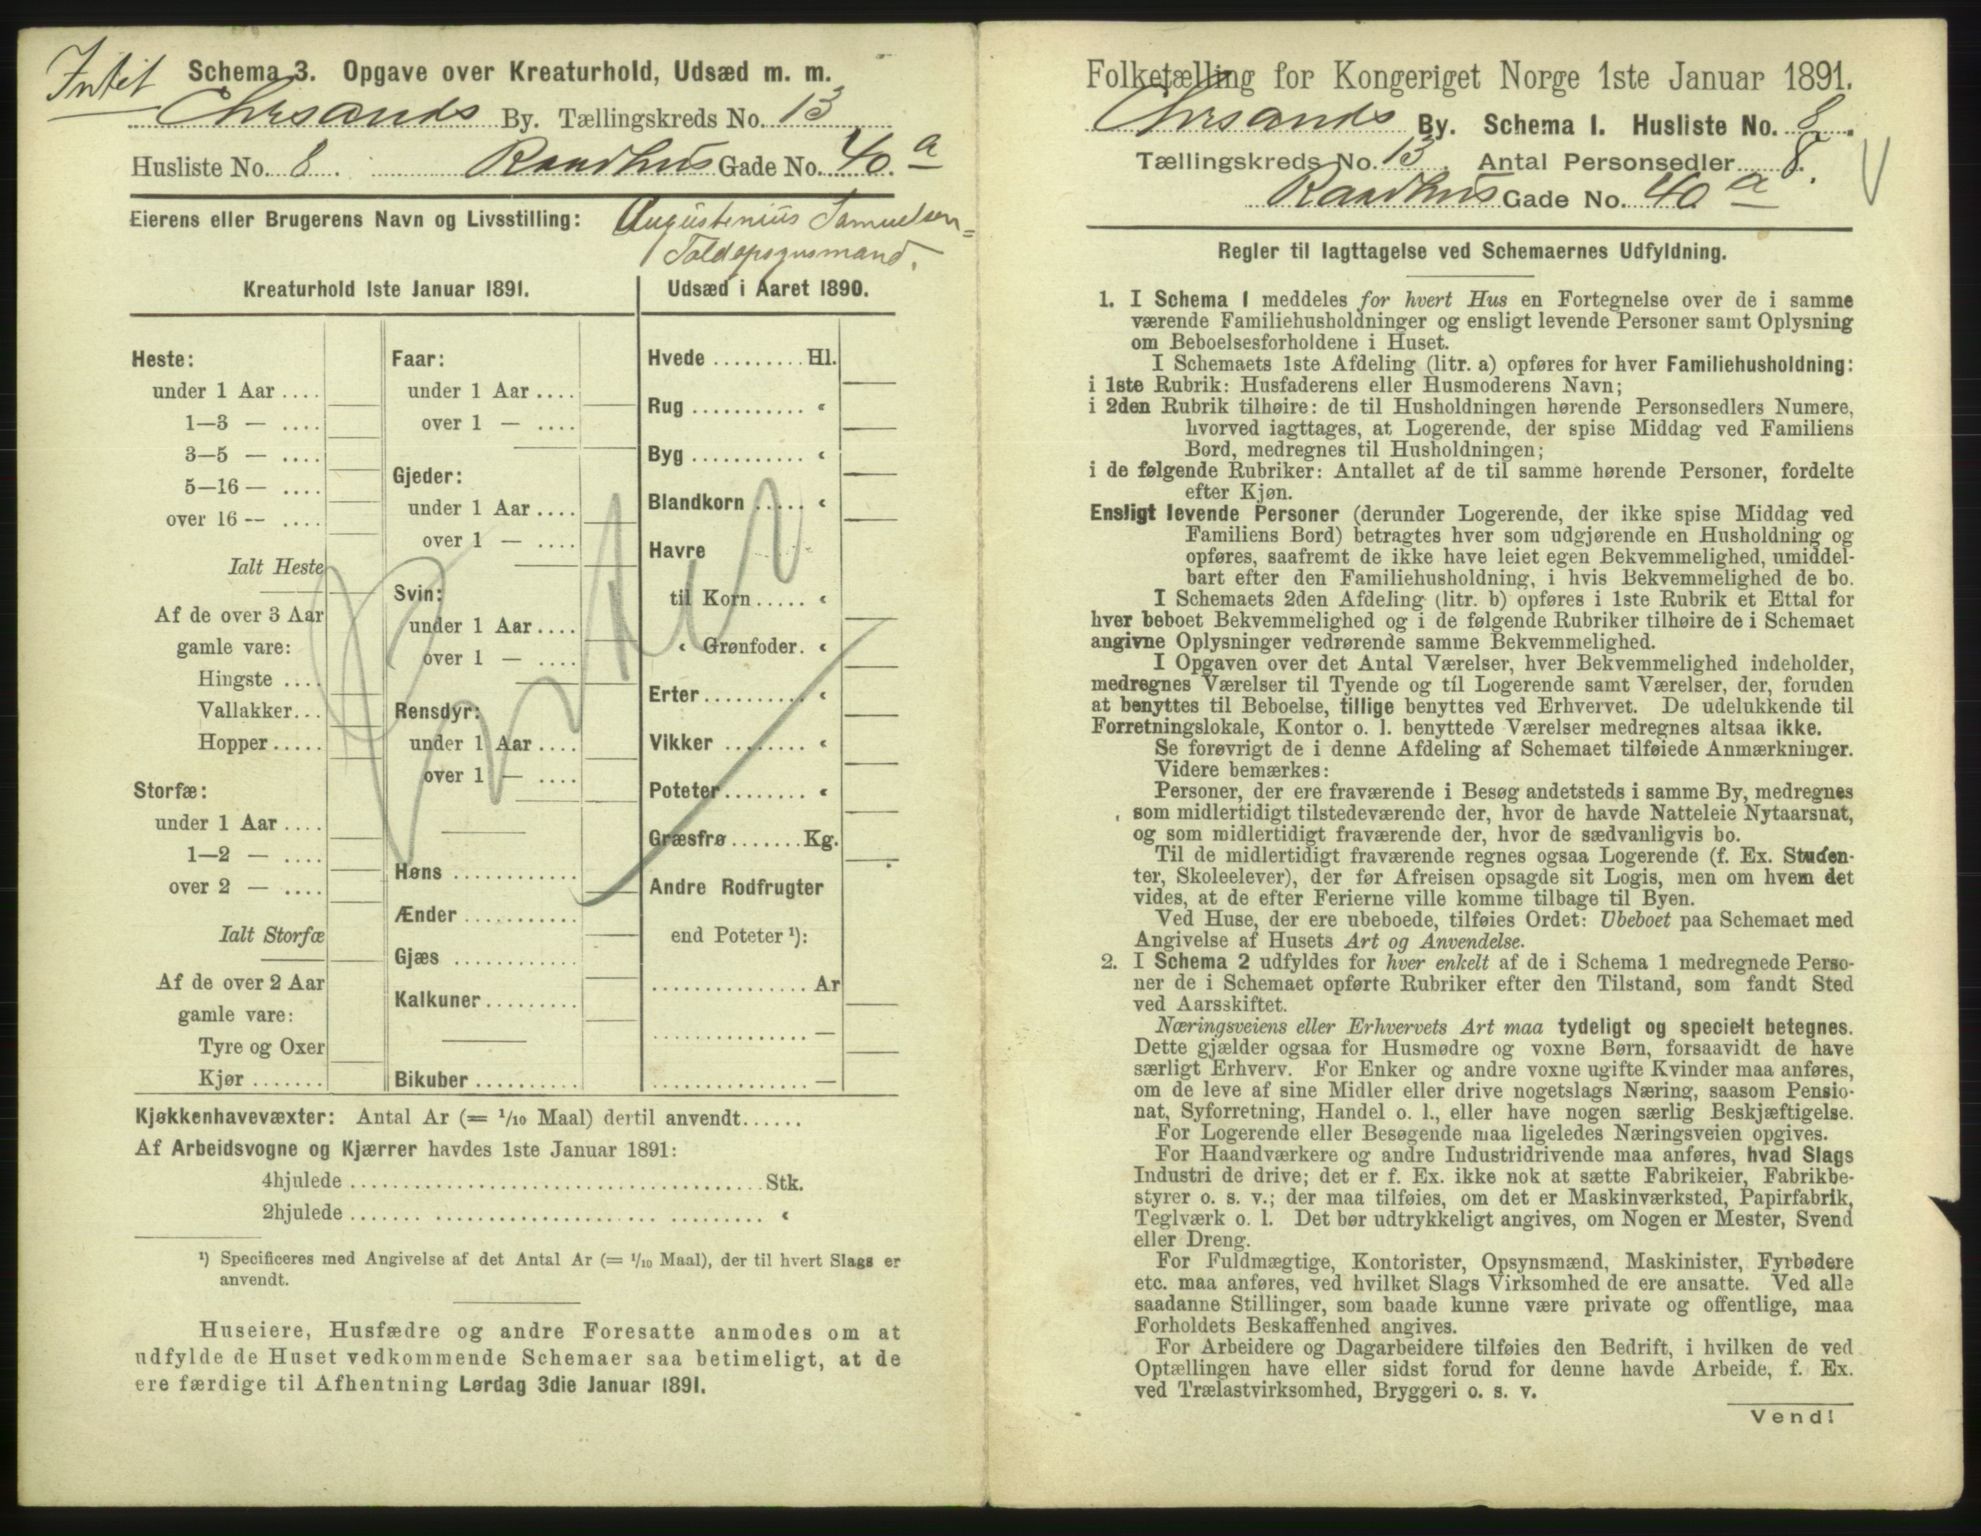 Intet
Schema 3. Opgave over Kreaturhold, Udsæd m. m.
Chrsands By. Tællingskreds No. 13
Husliste No. 8. Raadhus Gade No. 40 a
Eierens eller Brugerens Navn og Livsstilling: Augustenius Samuelsen
Toldopsynsmand.
Kreaturhold 1ste Januar 1891.
Heste:
under 1 Aar ....
1—3 — ....
3—5 — ....
5—16 — ....
over 16 -- ....
Ialt Heste
Af de over 3 Aar
gamle vare:
Hingste ....
Vallakker...
Hopper.....
Storfæ:
under 1 Aar ....
1—2 — ....
over 2 — ....
Ialt Storfæ
Af de over 2 Aar
gamle vare:
Tyre og Oxer
Kjør .......
Faar:
under 1 Aar ....
over 1 — ....
Gjeder:
under 1 Aar ....
over 1 — ....
Svin:
under 1 Aar ....
over 1 — ....
Rensdyr:
under 1 Aar ....
over 1 — ....
Høns ............
Ænder ...........
Gjæs ............
Kalkuner.........
Bikuber ..........
Udsæd i Aaret 1890.
Hvede ......... Hl.
Rug ........... «
Byg ........... «
Blandkorn ..... «
Havre
til Korn ..... «
« Grønfoder. «
Erter .......... «
Vikker ........ «
Poteter ........ «
Græsfrø ....... Kg.
Andre Rodfrugter
end Poteter ¹):
............... Ar
............... —
............... —
Kjøkkenhavevæxter: Antal Ar (= 1/10 Maal) dertil anvendt......
Af Arbeidsvogne og Kjærrer havdes 1ste Januar 1891:
4hjulede ....................................... Stk.
2hjulede ....................................... «
¹) Specificeres med Angivelse af det Antal Ar (= 1/10 Maal), der til hvert Slags er
anvendt.
Huseiere, Husfædre og andre Foresatte anmodes om at
udfylde de Huset vedkommende Schemaer saa betimeligt, at de
ere færdige til Afhentning Lørdag 3die Januar 1891.
Folketælling for Kongeriget Norge 1ste Januar 1891.
Chrsands By. Schema I. Husliste No. 8.
Tællingskreds No. 13. Antal Personsedler 8.
Raadhus Gade No. 40 a
Regler til Iagttagelse ved Schemaernes Udfyldning.
1. I Schema 1 meddeles for hvert Hus en Fortegnelse over de i samme
værende Familiehusholdninger og ensligt levende Personer samt Oplysning
om Beboelsesforholdene i Huset.
I Schemaets 1ste Afdeling (litr. a) opføres for hver Familiehusholdning:
i 1ste Rubrik: Husfaderens eller Husmoderens Navn;
i 2den Rubrik tilhøire: de til Husholdningen hørende Personsedlers Numere,
hvorved iagttages, at Logerende, der spise Middag ved Familiens
Bord, medregnes til Husholdningen;
i de følgende Rubriker: Antallet af de til samme hørende Personer, fordelte
efter Kjøn.
Ensligt levende Personer (derunder Logerende, der ikke spise Middag ved
Familiens Bord) betragtes hver som udgjørende en Husholdning og
opføres, saafremt de ikke have leiet egen Bekvemmelighed, umiddel-
bart efter den Familiehusholdning, i hvis Bekvemmelighed de bo.
I Schemaets 2den Afdeling (litr. b) opføres i 1ste Rubrik et Ettal for
hver beboet Bekvemmelighed og i de følgende Rubriker tilhøire de i Schemaet
angivne Oplysninger vedrørende samme Bekvemmelighed.
I Opgaven over det Antal Værelser, hver Bekvemmelighed indeholder,
medregnes Værelser til Tyende og til Logerende samt Værelser, der, foruden
at benyttes til Beboelse, tillige benyttes ved Erhvervet. De udelukkende til
Forretningslokale, Kontor o. l. benyttede Værelser medregnes altsaa ikke.
Se forøvrigt de i denne Afdeling af Schemaet tilføiede Anmærkninger.
Videre bemærkes:
Personer, der ere fraværende i Besøg andetsteds i samme By, medregnes
som midlertidigt tilstedeværende der, hvor de havde Natteleie Nytaarsnat,
og som midlertidigt fraværende der, hvor de sædvanligvis bo.
Til de midlertidigt fraværende regnes ogsaa Logerende (f. Ex. Studen-
ter, Skoleelever), der før Afreisen opsagde sit Logis, men om hvem det
vides, at de efter Ferierne ville komme tilbage til Byen.
Ved Huse, der ere ubeboede, tilføies Ordet: Ubeboet paa Schemaet med
Angivelse af Husets Art og Anvendelse.
2. I Schema 2 udfyldes for hver enkelt af de i Schema 1 medregnede Perso-
ner de i Schemaet opførte Rubriker efter den Tilstand, som fandt Sted
ved Aarsskiftet.
Næringsveiens eller Erhvervets Art maa tydeligt og specielt betegnes.
Dette gjælder ogsaa for Husmødre og voxne Børn, forsaavidt de have
særligt Erhverv. For Enker og andre voxne ugifte Kvinder maa anføres,
om de leve af sine Midler eller drive nogetslags Næring, saasom Pensio-
nat, Syforretning, Handel o. l., eller have nogen særlig Beskjæftigelse.
For Logerende eller Besøgende maa ligeledes Næringsveien opgives.
For Haandværkere og andre Industridrivende maa anføres, hvad Slags
Industri de drive; det er f. Ex. ikke nok at sætte Fabrikeier, Fabrikbe-
styrer o. s. v.; der maa tilføies, om det er Maskinværksted, Papirfabrik,
Teglværk o. l. Det bør udtrykkeligt angives, om Nogen er Mester, Svend
eller Dreng.
For Fuldmægtige, Kontorister, Opsynsmænd, Maskinister, Fyrbødere
etc. maa anføres, ved hvilket Slags Virksomhed de ere ansatte. Ved alle
saadanne Stillinger, som baade kunne være private og offentlige, maa
Forholdets Beskaffenhed angives.
For Arbeidere og Dagarbeidere tilføies den Bedrift, i hvilken de ved
Optællingen have eller sidst forud for denne havde Arbeide, f. Ex.
ved Trælastvirksomhed, Bryggeri o. s. v.
Vend!